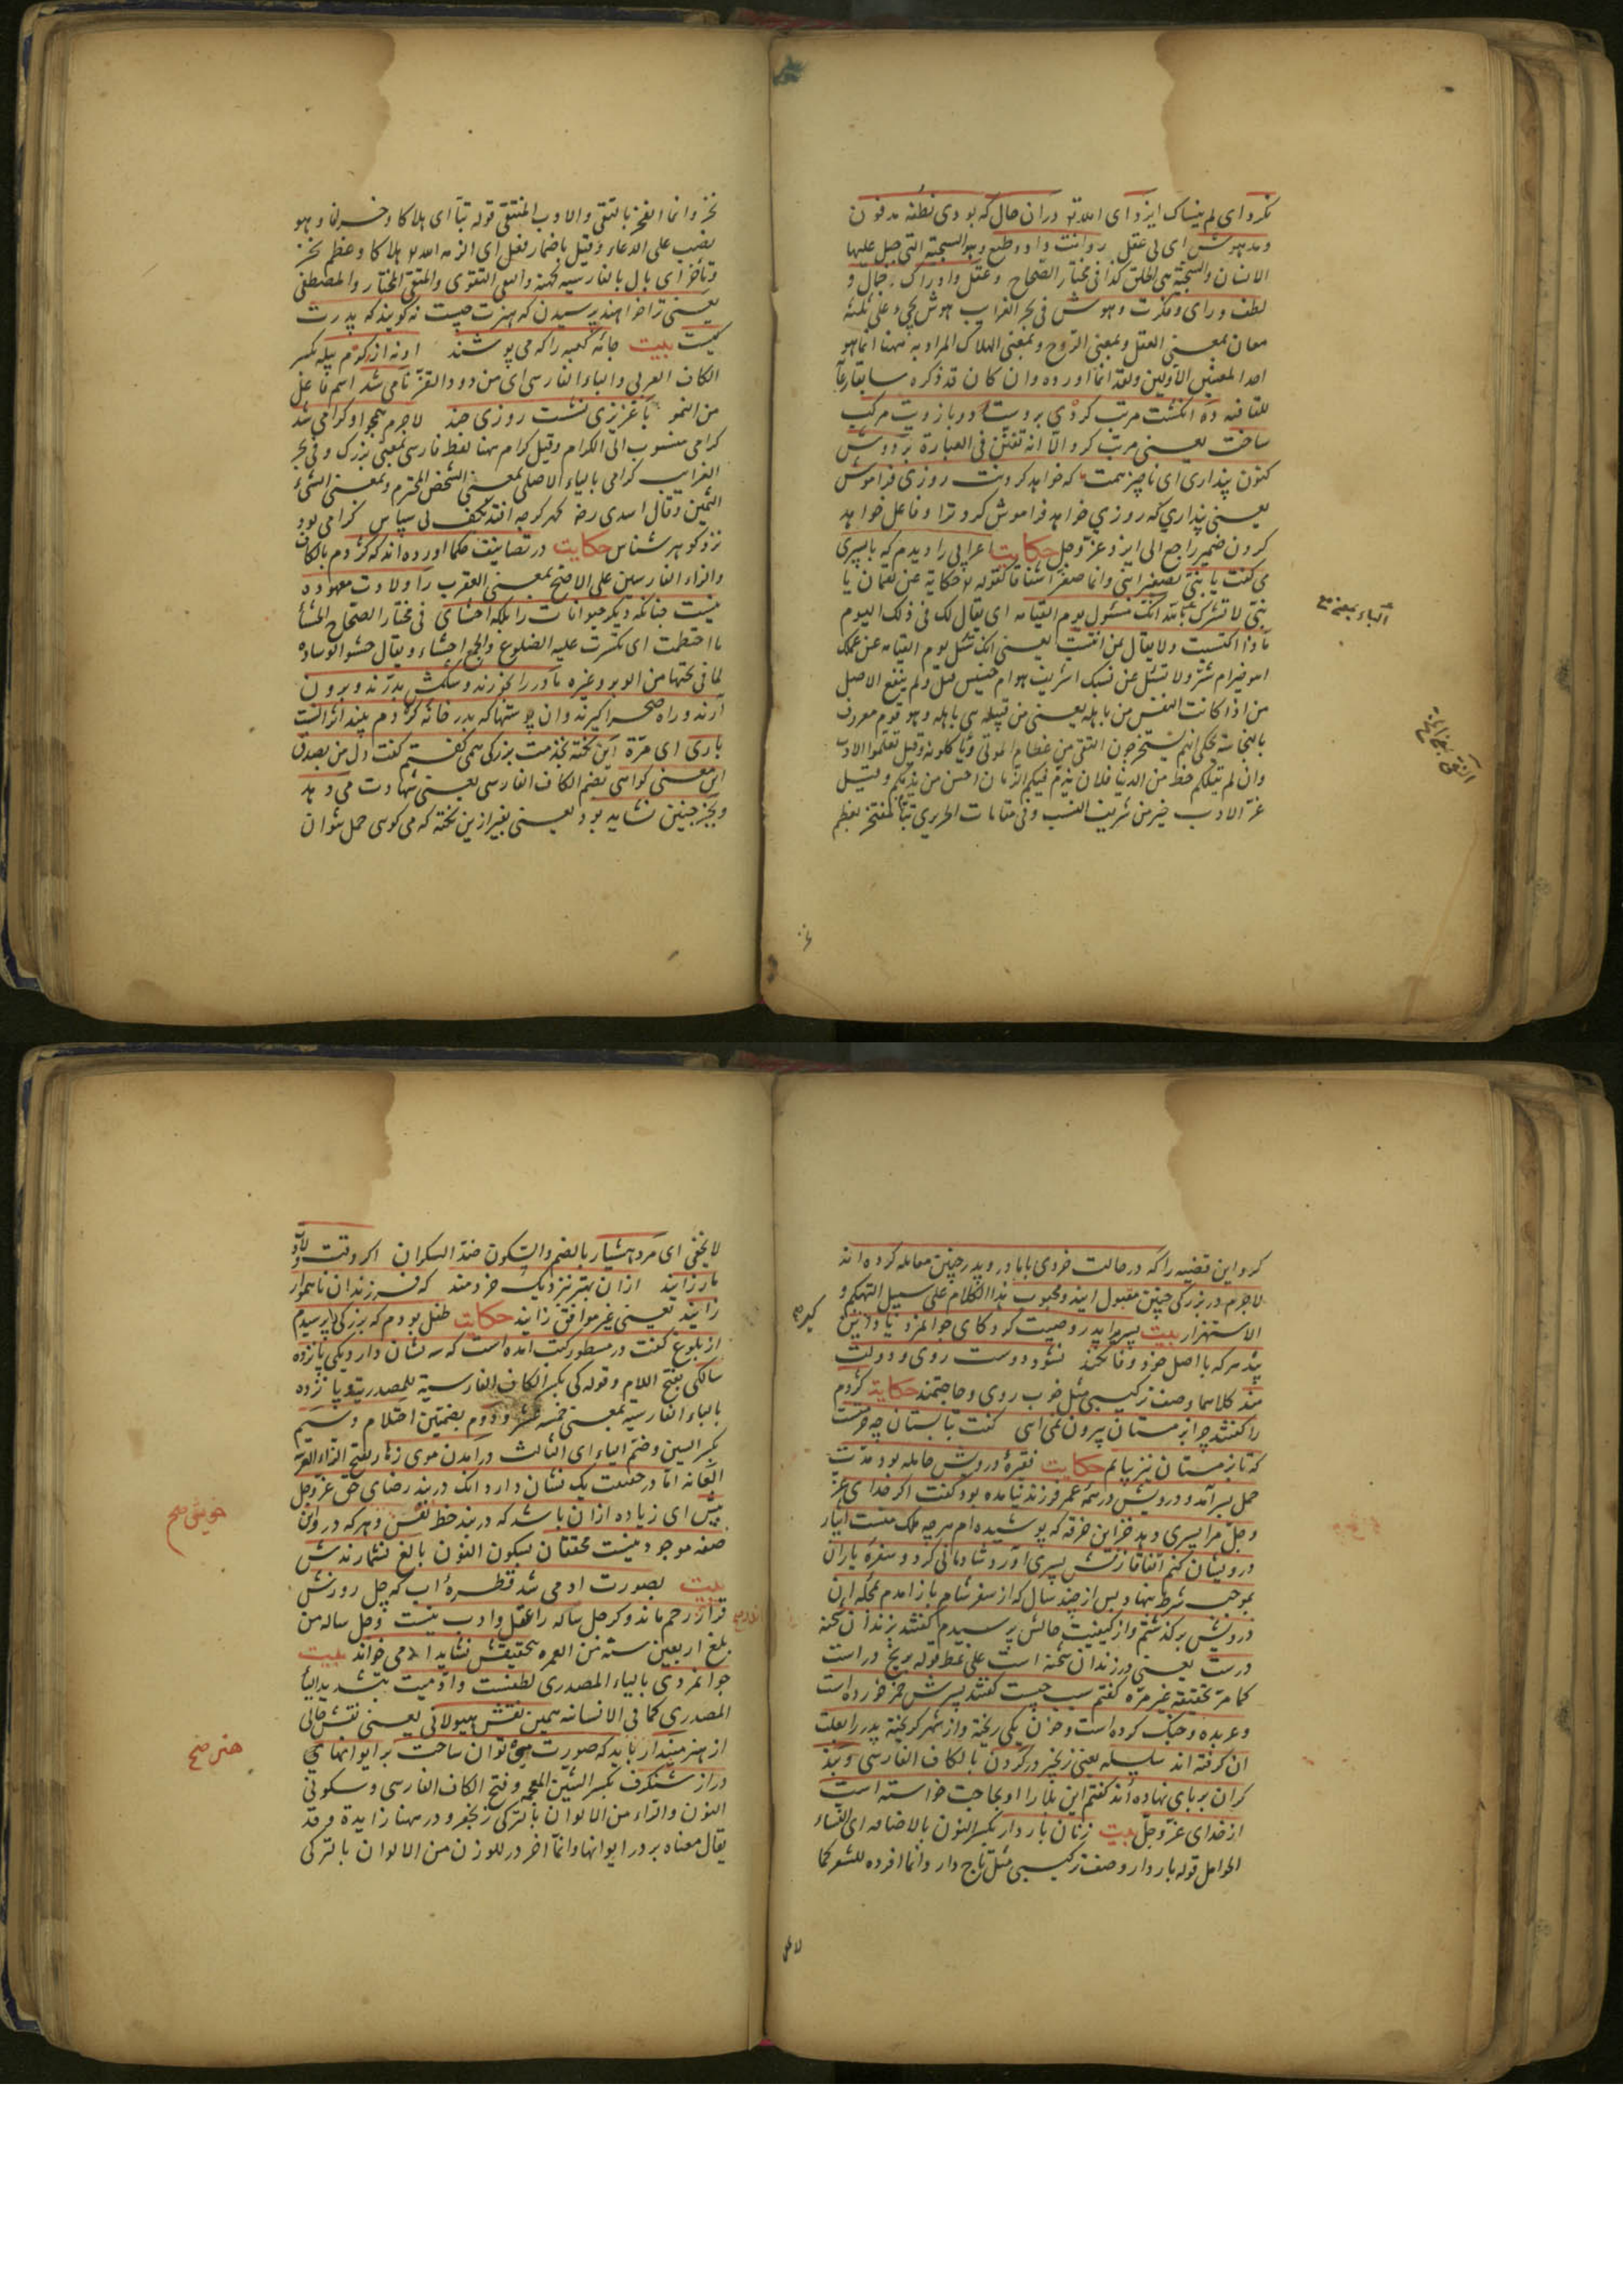 نکرد ای لم ینساک ایزد ای الله تع دران حال که بودی نطفهٔ مدفون
و مدهوش ای بی عقل روانت داد و طبع و هو السجیة التی جبل علیها
الانسان والسجیة هی الخلق کذا فی مختار الصحاح و عقل و ادراک جمال و
لطف و رای و فکرت و هوش فی بحر الغرایب هوش یجیء علی ثلثة
معان بمعنی العقل و بمعنی الروح و بمعنی الهلاک المراد به ههنا انما هو
احد المعنیین الاولین و لقد انما اورده وان کان قد ذکره سابقا رعایة
للقافیه ده انکشت مرتب کردی بر دست دو بازویت مرکب
ساخت یعنی مرتب کرد الا انه تفنن فی العبارة بر دوش
کنون پنداری ای ناچیز همت که خواهد کردنت روزی فراموش
یعنی پنداری که روزی خواهد فراموش کرد ترا و فاعل خواهد
کردن ضمیر راجع الی ایزد عز وجل حکایت اعرابی را دیدم که با پسری
می کفت یا بنی تصغیر ابنی وانما صغر اشفاقا کقوله تع حکایة عن لقمان یا
بنی لا تشرک بالله انک مسئول یوم القیامه ای یقال لک فی ذلک الیوم
ماذا اکتسبت ولا یقال بمن انتسبت یعنی انک تسئل یوم القیامه عن عملک
اهو خیر ام شر ولا تسئل عن نسبک اشریف هو ام خسیس قیل ولم ینفع الاصل
من اذا کانت النفس من باهله یعنی من قبیله هی باهله وهو قوم معروف
بالخباسة یحکی انهم یستخرجون النقی من عظام الموتی و یاکلونه و قیل تعلموا الادب
وان لم ینلکم حظ من الدنیا فلان یذم فیکم الزمان احسن من یذمکم وقیل
عز الادب خیر من شریف النسب و فی مقامات الحریری تبا لمفتخر بعظم
الباء بمعنی مع
نخر وانما الفخر بالتقی والادب المنتقی قوله تبا ای هلاکا و خسرانا و هو
نصب علی الدعاء و قیل باضمار فعل ای الزمه الله هلاکا و عظم نخر
و ناخر ای بال بالفارسیه کهنه والتقی التقوی والمنتقی المختار والمصطفی
یعنی ترا خواهند پرسیدن که هنرت چیست نه کویند که پدرت
کیست بیت جامهٔ کعبه را که می پوشند او نه از کرم پیله بکسر
الکاف العربی والباء الفارسی ای من دود القز نامی شد اسم فاعل
من النمو با عزیزی نشست روزی چند لاجرم همچو او کرامی شد
کرامی منسوب الی الکرام و قیل کرام ههنا لفظ فارسی بمعنی بزرک و فی بحر
الغرایب کرامی بالیاء الاصلی بمعنی الشخص المحترم و بمعنی الشیء
الثمین و قال اسدی رح کهر کرچه افتد بکف بی سپاس کرامی بود
نزد کوهر شناس حکایت در تصانیف حکما اورده اند که کژدم بالکاف
والزاء الفارسیین علی الاصح بمعنی العقرب را ولادت معهوده
نیست چنانکه دیکر حیوانات را بلکه احشای فی مختار الصحاح الحشا
ما اضطمت ای تکسرت علیه الضلوع والجمع احشاء و یقال حشو الوساده
لما فی تحتها من الوبر و غیره مادر را بخورند و شکمش بدرند و برون
آیند و راه صحرا کیرند وان پوستها که بدر خانه کژدم بینند اثر آنست
باری ای مرة این نکته بخدمت بزرکی همی کفتم کفت دل من بصدق
این معنی کواهی بضم الکاف الفارسی یعنی شهادت می دهد
و بجز چنین نشاید بود یعنی بغیر ازین نکته که می کوئی حمل نتوان
کرد این قضیه را که در حالت خردی با مادر و پدر چنین معامله کرده اند
لاجرم در بزرکی چنین مقبول ایند و محبوب هذا الکلام علی سبیل التهکم و
الاستهزار بیت پسر را پدر وصیت کرد کای جوانمرد یاد این
پند هر که با اصل خود وفا نکند نشود دوست روی و دولت
مند کلاهما وصف ترکیبی مثل خوب روی و حاجتمند حکایت کژدم
را کفتند چرا بزمستان بیرون نمی ایی کفت بتابستان چه حرمتست
که تا زمستان نیز بیایم حکایت فقرهٔ درویش حامله بود مدت
حمل بسر آمد و درویش در همه عمر فرزند نیامده بود کفت اکر خدای عز
وجل مرا پسری دهد جز این خرقه که پوشیده ام هر چه ملک منست ایثار
درویشان کنم اتفاقا زنش پسری آورد شادمانی کرد و سفرهٔ یاران
بموجب شرط بنهاد پس از چند سال که از سفر شام باز امدم بمحله ان
درویش برکذشتم و از کیفیت حالش پرسیدم کفتند بزندان شحنه
درست یعنی در زندان شحنه است علی نمط قوله بریخ در است
کما مر تحقیقه غیر مره کفتم سبب چیست کفتند پسرش خمر خورده است
و عربده و جنک کرده است و خون یکی ریخته و از شهر کریخته پدر را بعلت
ان کرفته اند سلسله یعنی زنجیر در کردن بالکاف الفارسی و بند
کران بر پای نهاده اند کفتم این بلا را او بحاجت خواسته است
از خدای عز وجل بیت زنان باردار بکسر النون بالاضافه ای النساء
الحوامل قوله باردار وصف ترکیبی مثل تاج دار وانما افرده للشعر کما
لایخفی
لایخفی ای مرد هشیار بالضم والسکون ضد السکران اکر وقت ولادت
مار زایند ازان بهتر بنزدیک خردمند که فرزندان ناهموار
زایند یعنی غیر موافق زایند حکایت طفل بودم که بزرکی را پرسیدم
از بلوغ کفت در مسطور کتب امده است که سه نشان دارد یکی پانزده
سالکی بفتح اللام و قوله کی بکسر الکاف الفارسیة للمصدریة و پانزده
بالباء الفارسیة بمعنی خمسة عشر و دوم بضمتین احتلام و سیم
بکسر السین و ضم الیاء ای الثالث درآمدن موی زهار بفتح الزاء المعجمة
العانه اما در حقیقت یک نشان دارد انک در بند رضای حق عز وجل
بیش ای زیاده ازان باشد که در بند حظ نفس و هر که درو این
صفه موجود نیست محققان بسکون النون بالغ نشمارندش
بیت بصورت ادمی شد قطرهٔ اب که چل روزش
قرار اندر رحم ماند و کر چل ساله را عقل و ادب نیست و چل ساله من
بلغ اربعین سنة من العمر بتحقیقش نشاید ادمی خواند بیت
جوانمردی بالیاء المصدری لطفست و ادمیت بتشدید الیاء
المصدری کما فی الانسانیه همین نقش هیولانی یعنی نقش خالی
از هنر مپندار باید که صورت می توان ساخت بر ایوانها می
دراز شنکرف بکسر الشین المعجمه و فتح الکاف الفارسی و سکونی
النون والراء من الالوان بالترکی زنجفر و در ههنا زایدة و قد
یقال معناه بر در ایوانها وانما آخر در للوزن من الالوان بالترکی
خویش صح
هنر صح